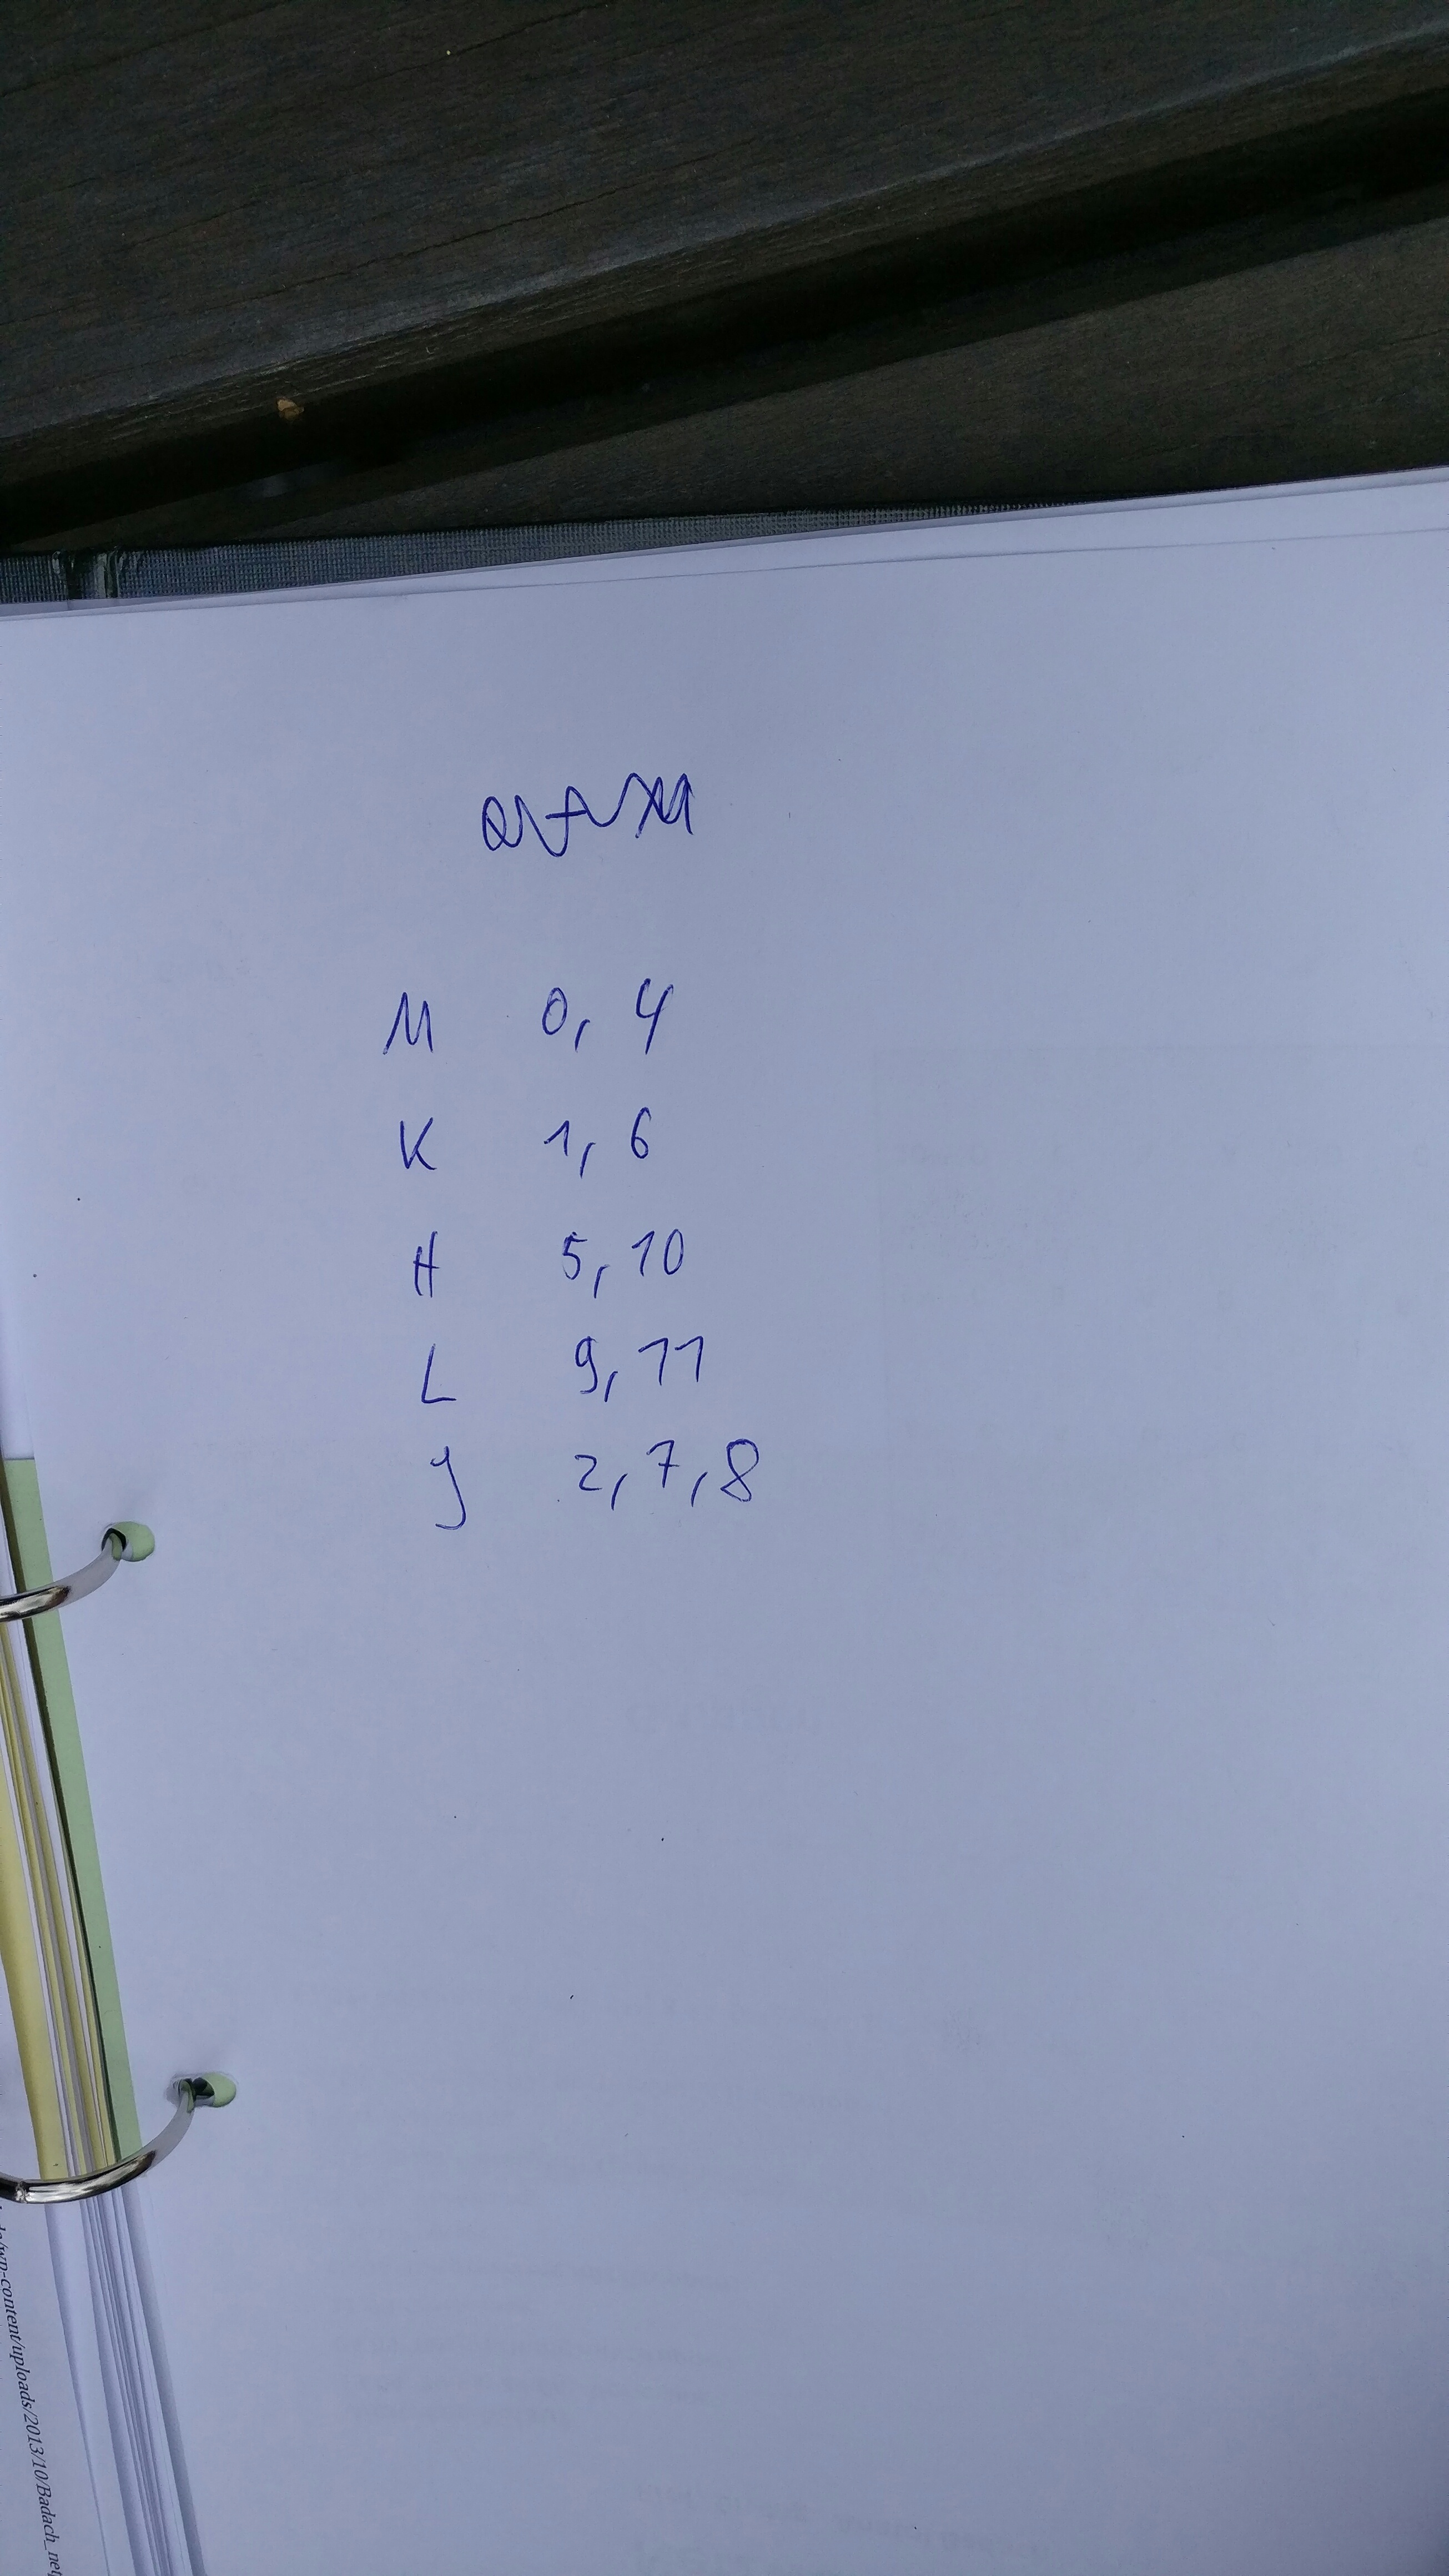 M 0, 4
K 1, 6
H 5, 10
L 9, 11
J 2, 7, 8
wp-content/uploads/2013/10/Badach_net